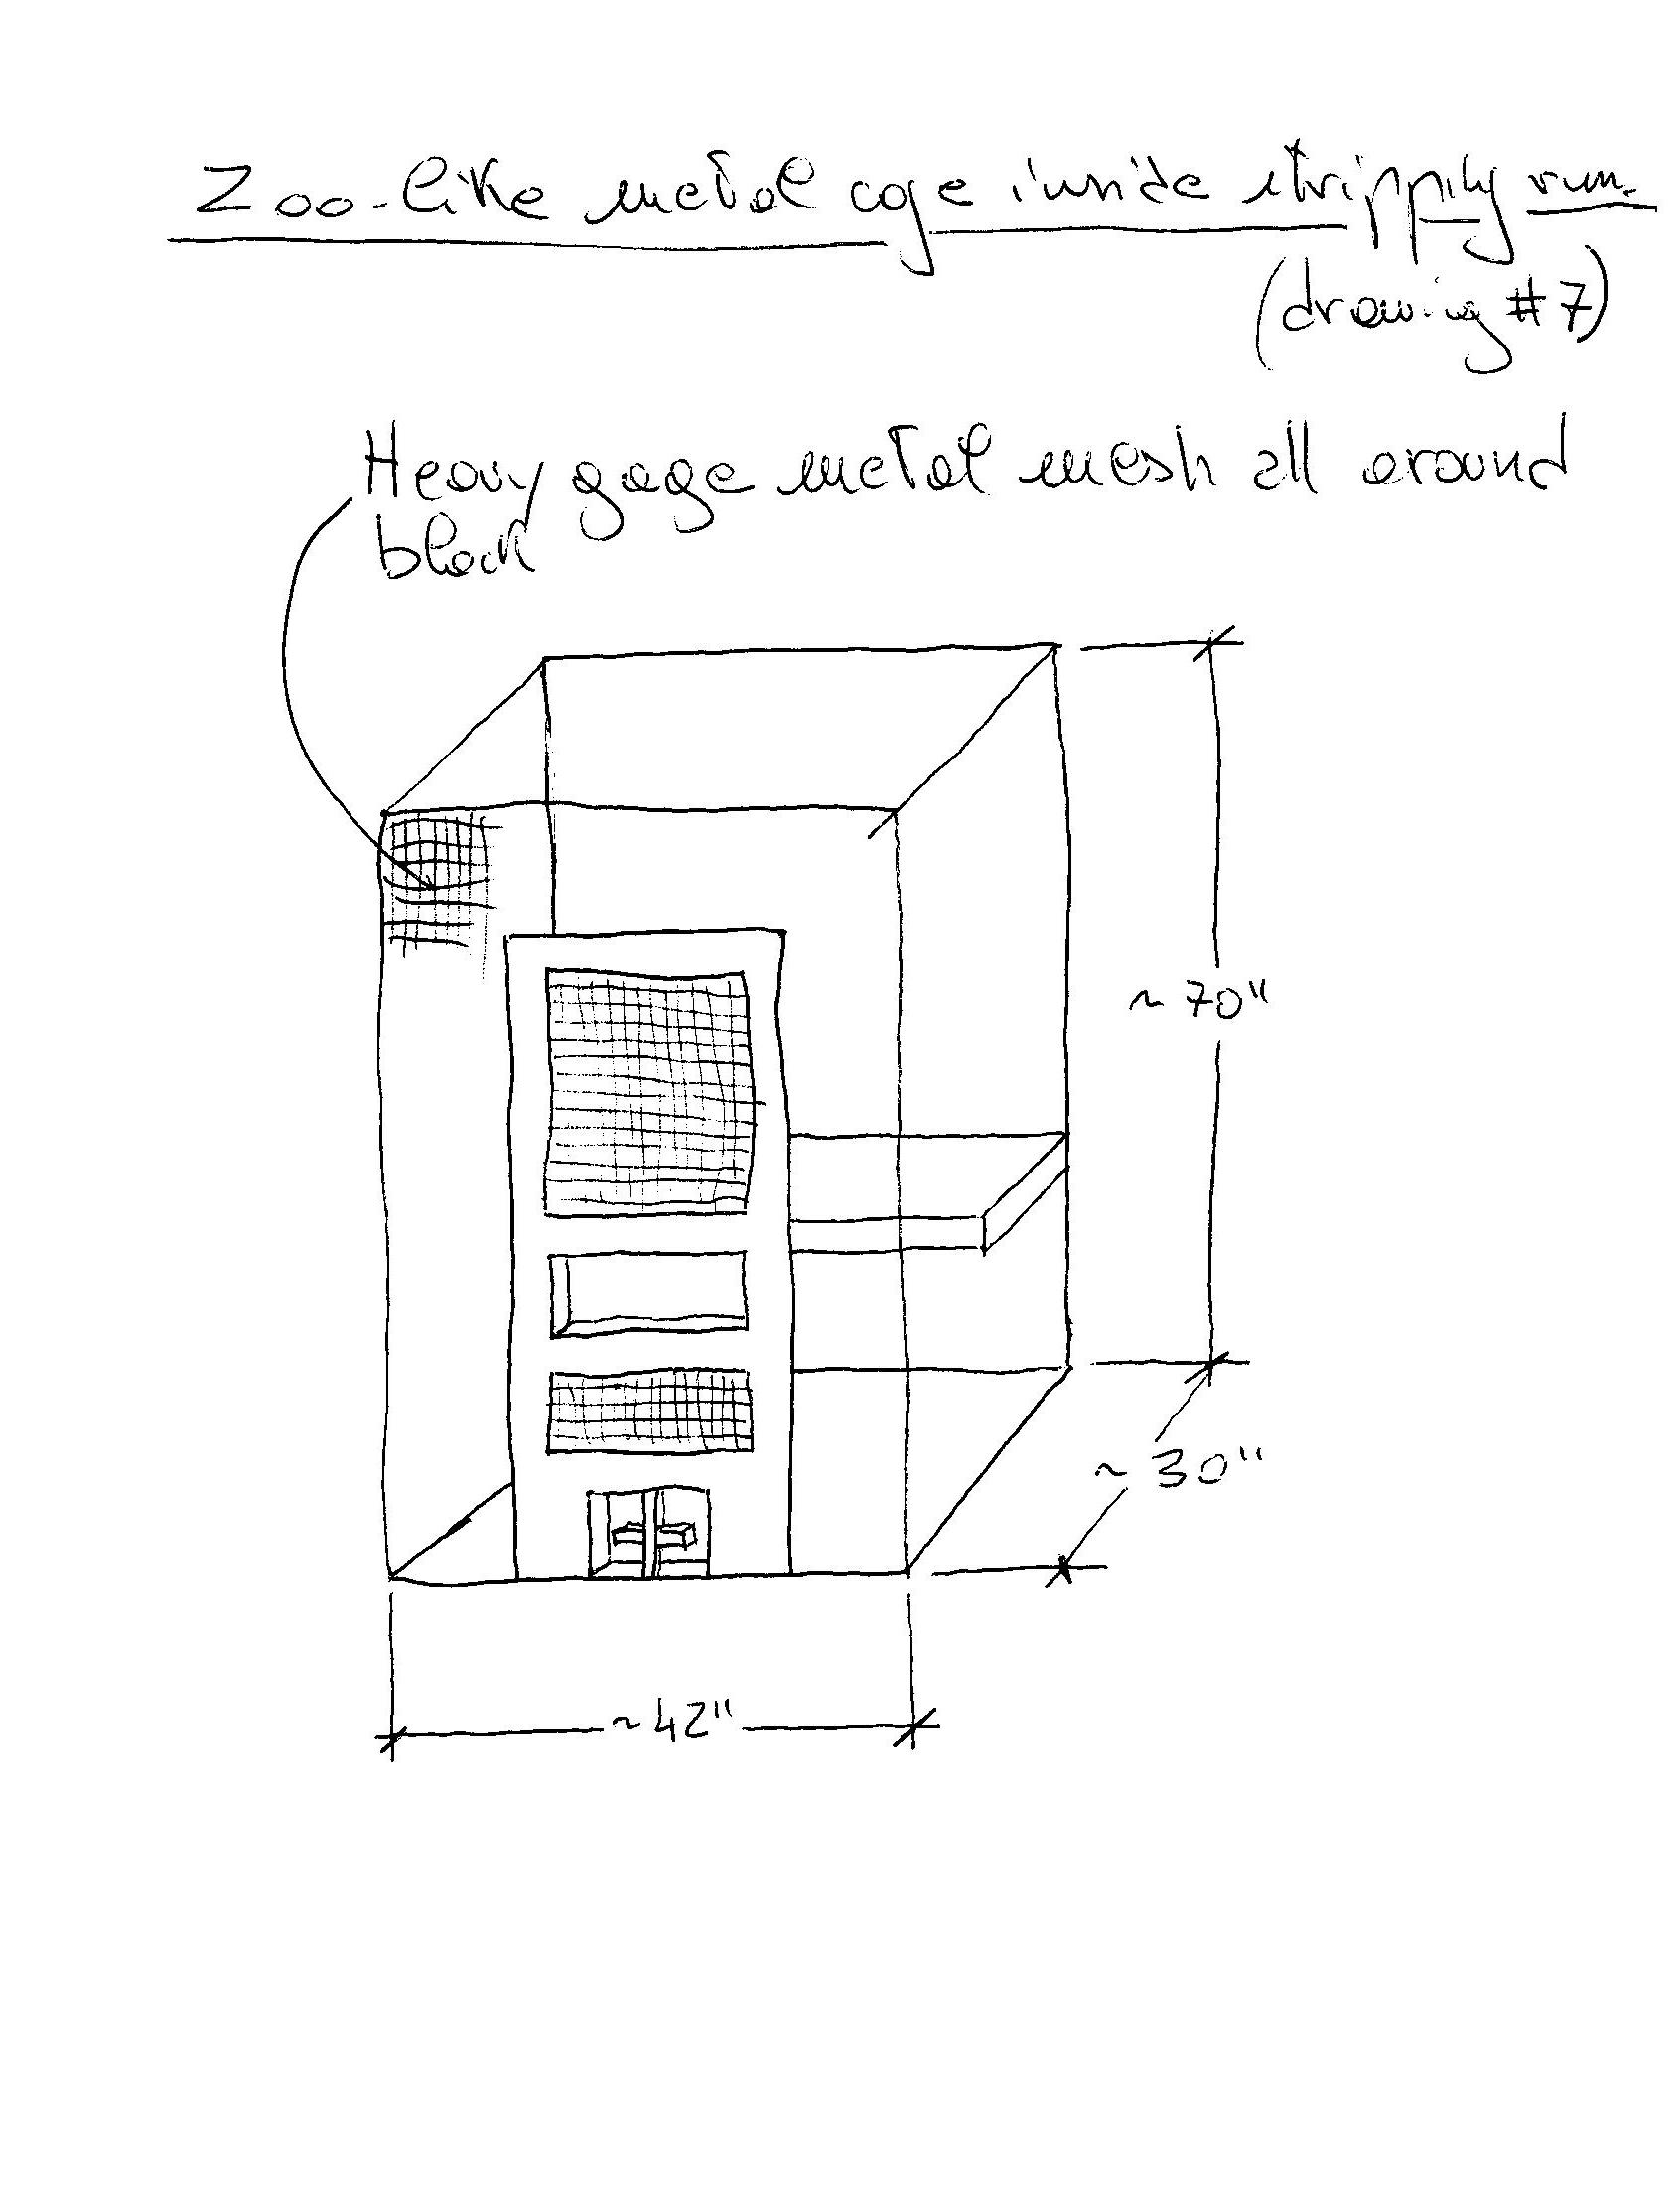 Zoo-like metal cage inside stripping rum.
(drawing #7)
Heavy gage metal mesh all around
black
~ 70"
~ 30"
~ 42"